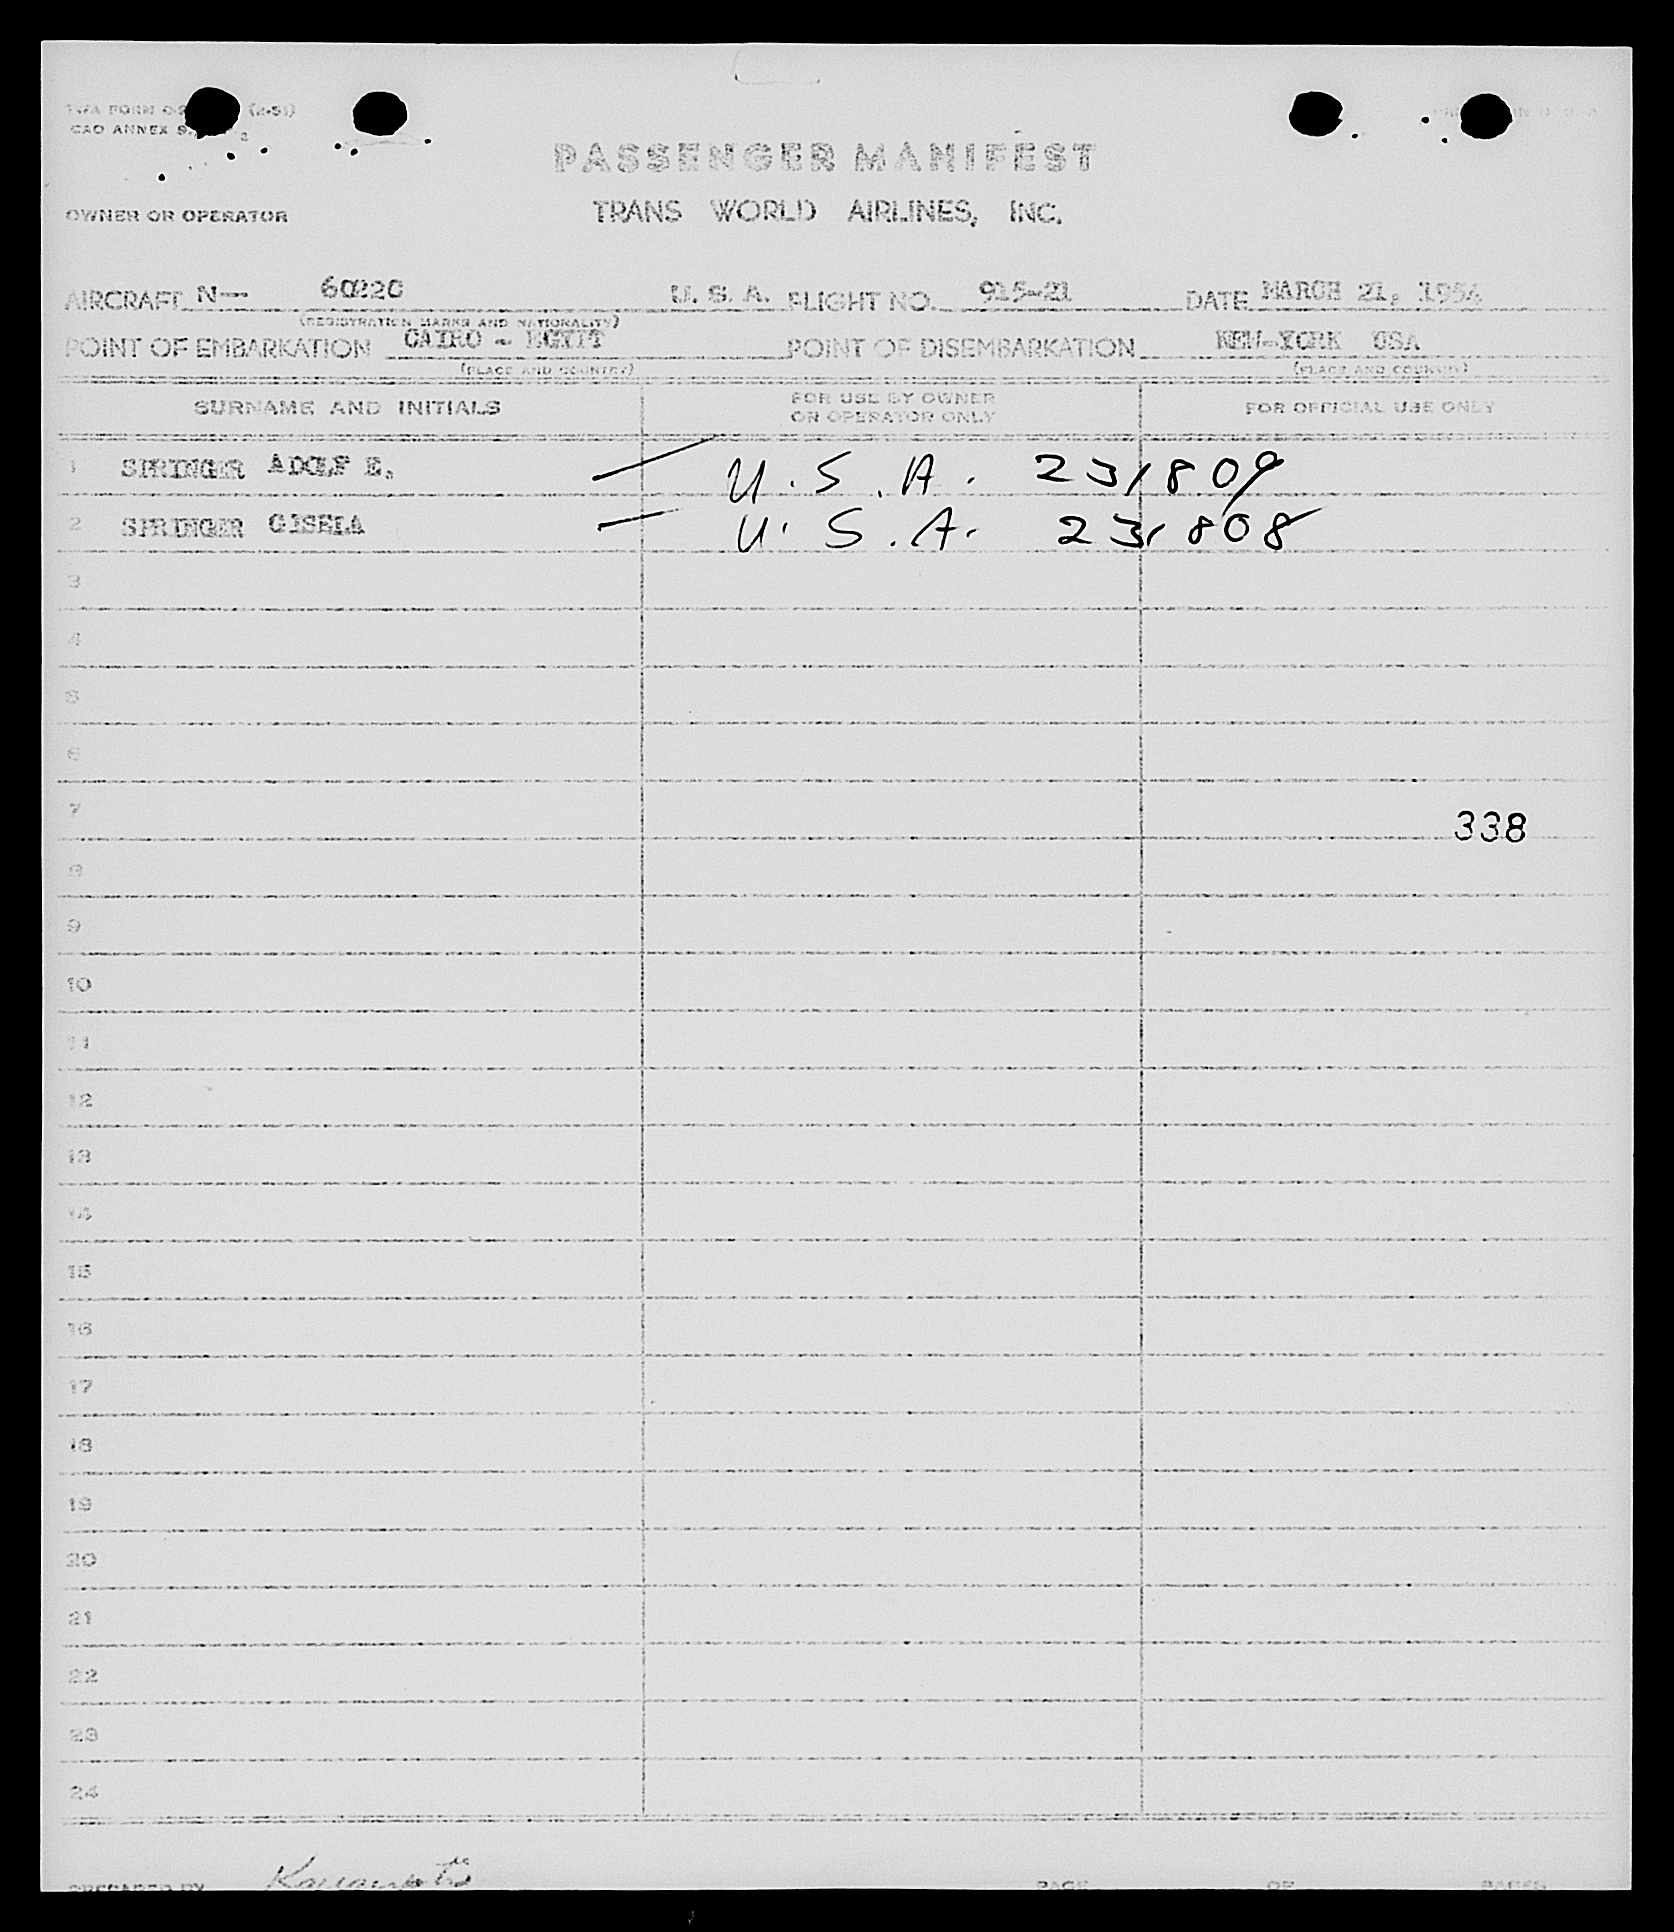 TWA FORM (2-51)
ICAO ANNEX 9,
PASSENGER MANIFEST
OWNER OR OPERATOR TRANS WORLD AIRLINES, INC.
AIRCRAFT N— 60220 U. S. A. FLIGHT NO. 915-21 DATE MARCH 21, 1954
(REGISTRATION MARKS AND NATIONALITY)
POINT OF EMBARKATION CAIRO - EGYPT POINT OF DISEMBARKATION NEW-YORK USA
(PLACE AND COUNTRY) (PLACE AND COUNTRY)
SURNAME AND INITIALS FOR USE BY OWNER OR OPERATOR ONLY FOR OFFICIAL USE ONLY
1 SPRINGER ADOLF E. — U.S.A. 231809
2 SPRINGER GISELA — U.S.A. 231808
3
4
5
6
7 338
8
9
10
11
12
13
14
15
16
17
18
19
20
21
22
23
24
PREPARED BY PAGE OF PAGES